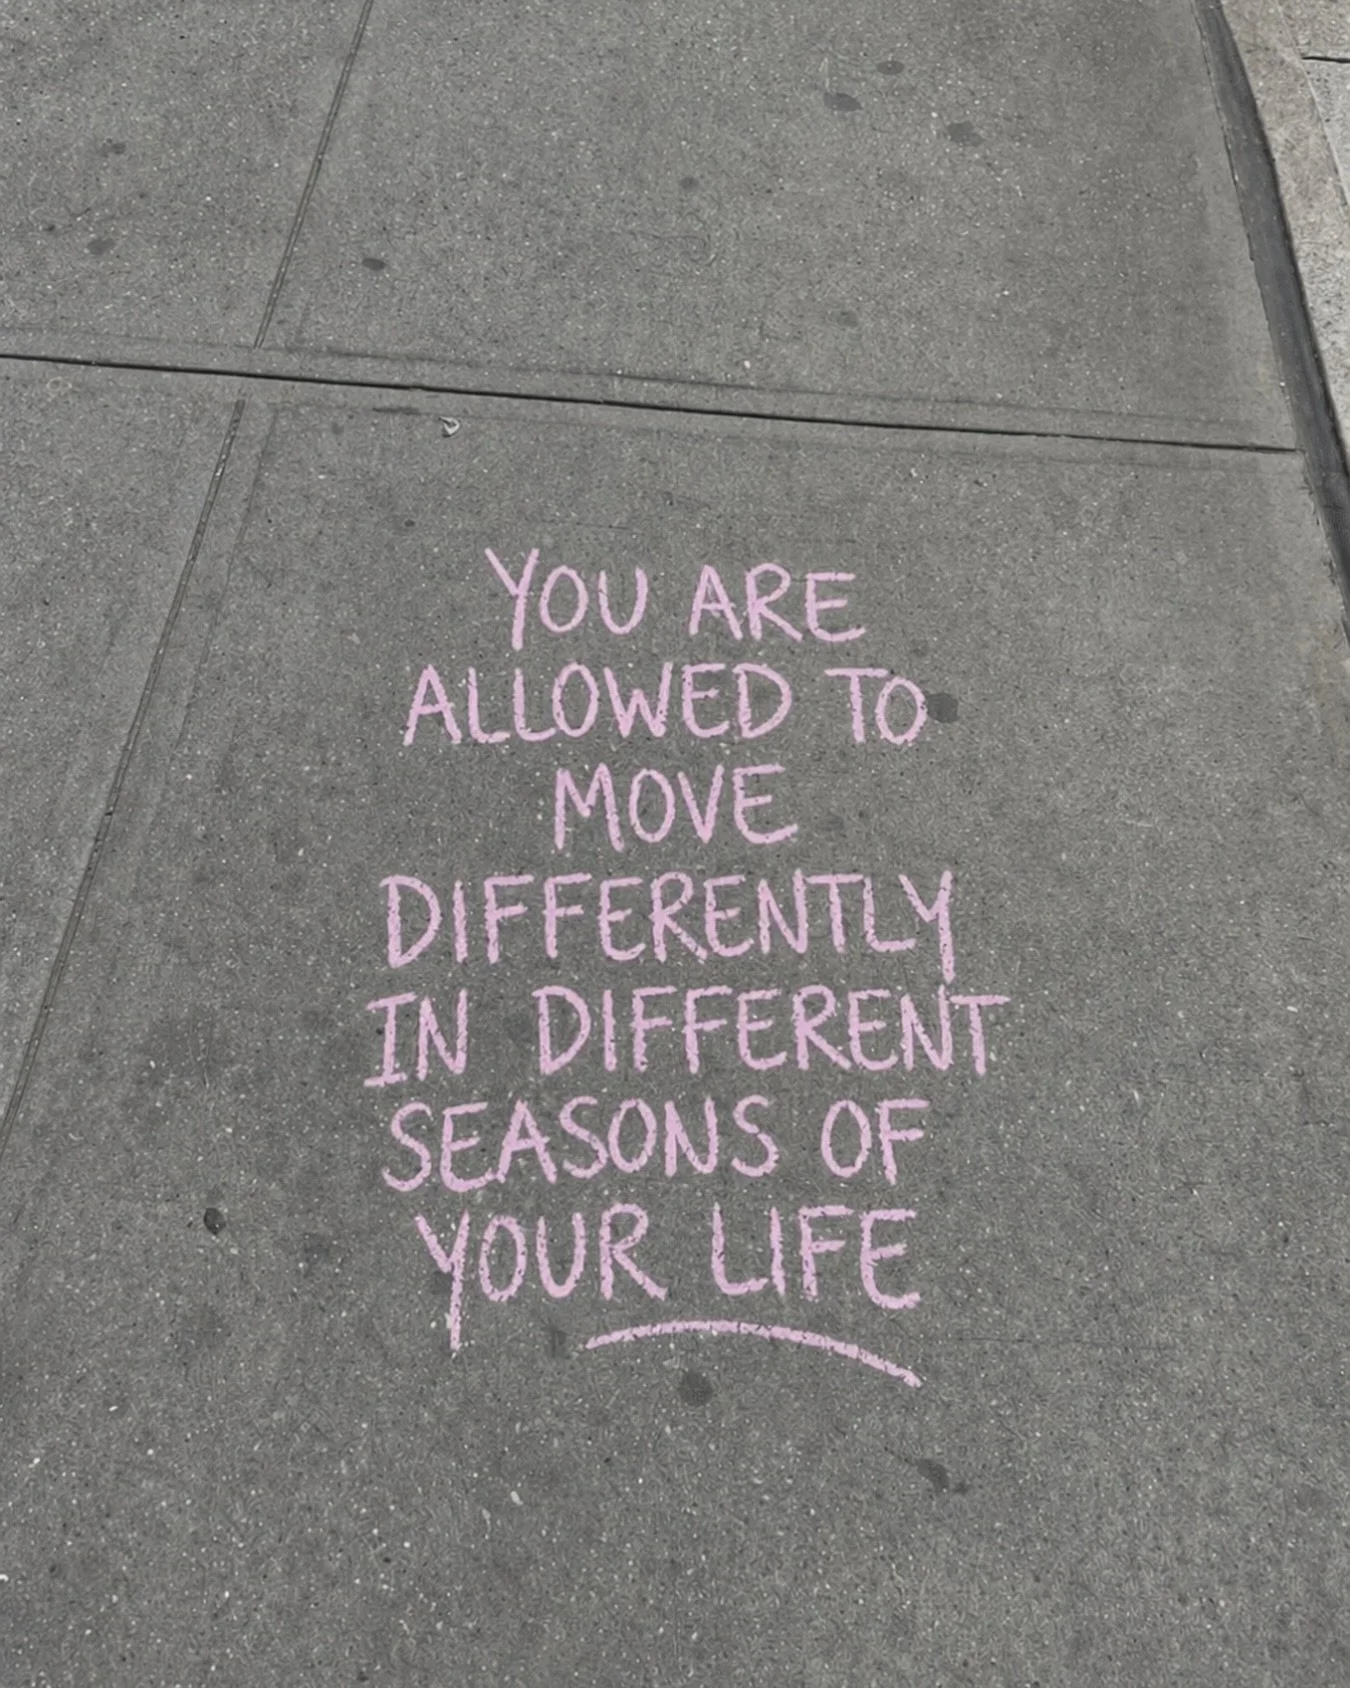 YOU ARE
ALLOWED TO
MOVE
DIFFERENTLY
IN DIFFERENT
SEASONS OF
YOUR LIFE